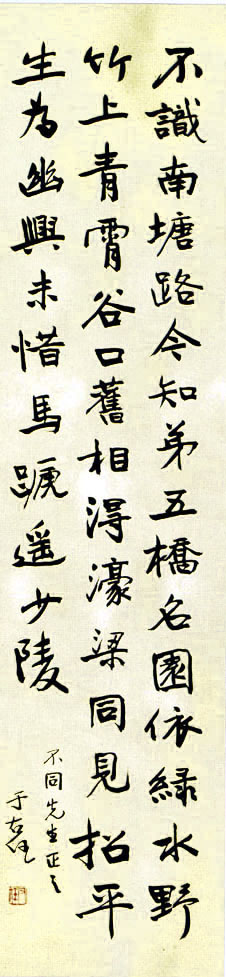 不識南塘路今知弟五橋名園依綠水野
竹上青霄谷口舊相得濠梁同見招平
生為幽興未惜馬蹏遥少陵
不同先生正之
于右任